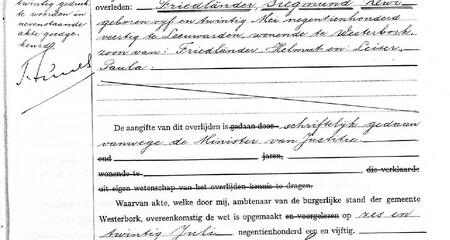 twintig gedruk-
te woorden en
nevenstaande
akte goedge-
keurd.
overleden: Friedländer, Siegmund Levi
geboren vyf en twintig Mei negentienhonderd
veertig te Leeuwarden, wonende te Westerbork
zoon van: Friedländer, Helmut en: Leiser,
Paula.
De aangifte van dit overlijden is gedaan door schriftelyk gedaan
vanwege de Minister van Justitie.
oud jaren,
wonende te die verklaarde
uit eigen wetenschap van het overlijden kennis te dragen.
Waarvan akte, welke door mij, ambtenaar van de burgerlijke stand der gemeente
Westerbork, overeenkomstig de wet is opgemaakt en voorgelezen op zes en
twintig Juli negentienhonderd een en vijftig.